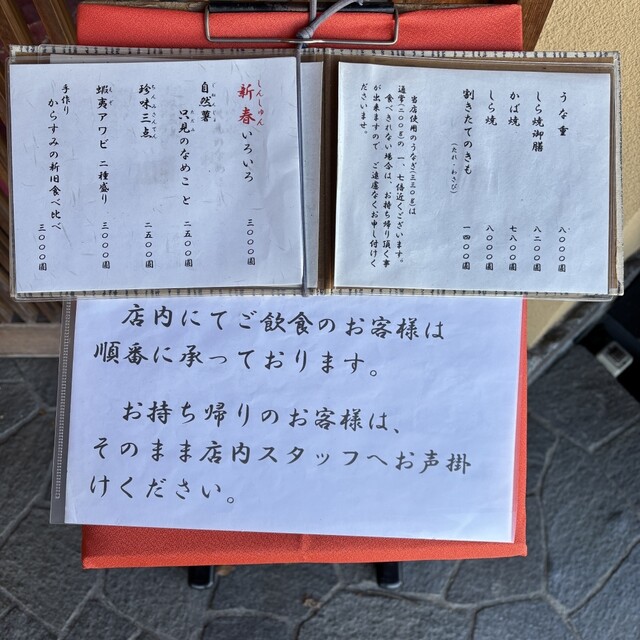 うな重 八〇〇〇圓
しら焼御膳 八二〇〇圓
かば焼 七八〇〇圓
しら焼 八〇〇〇圓
割きたてのきも 一四〇〇圓
(たれ・わさび)
当店使用のうなぎ(三三〇g)は
通常(二〇〇g)の一、七倍近くございます。
食べきれない場合は、お持ち帰り頂く事
が出来ますので、ご遠慮なくお申し付けく
ださいませ。
しんしゅん
新春いろいろ 三〇〇〇圓
自然薯
只見のなめこ と 二五〇〇圓
珍味三点 二五〇〇圓
蝦夷アワビ 二種盛り 三〇〇〇圓
手作り
からすみの新旧食べ比べ 三〇〇〇圓
店内にてご飲食のお客様は
順番に承っております。
お持ち帰りのお客様は、
そのまま店内スタッフへお声掛
けください。